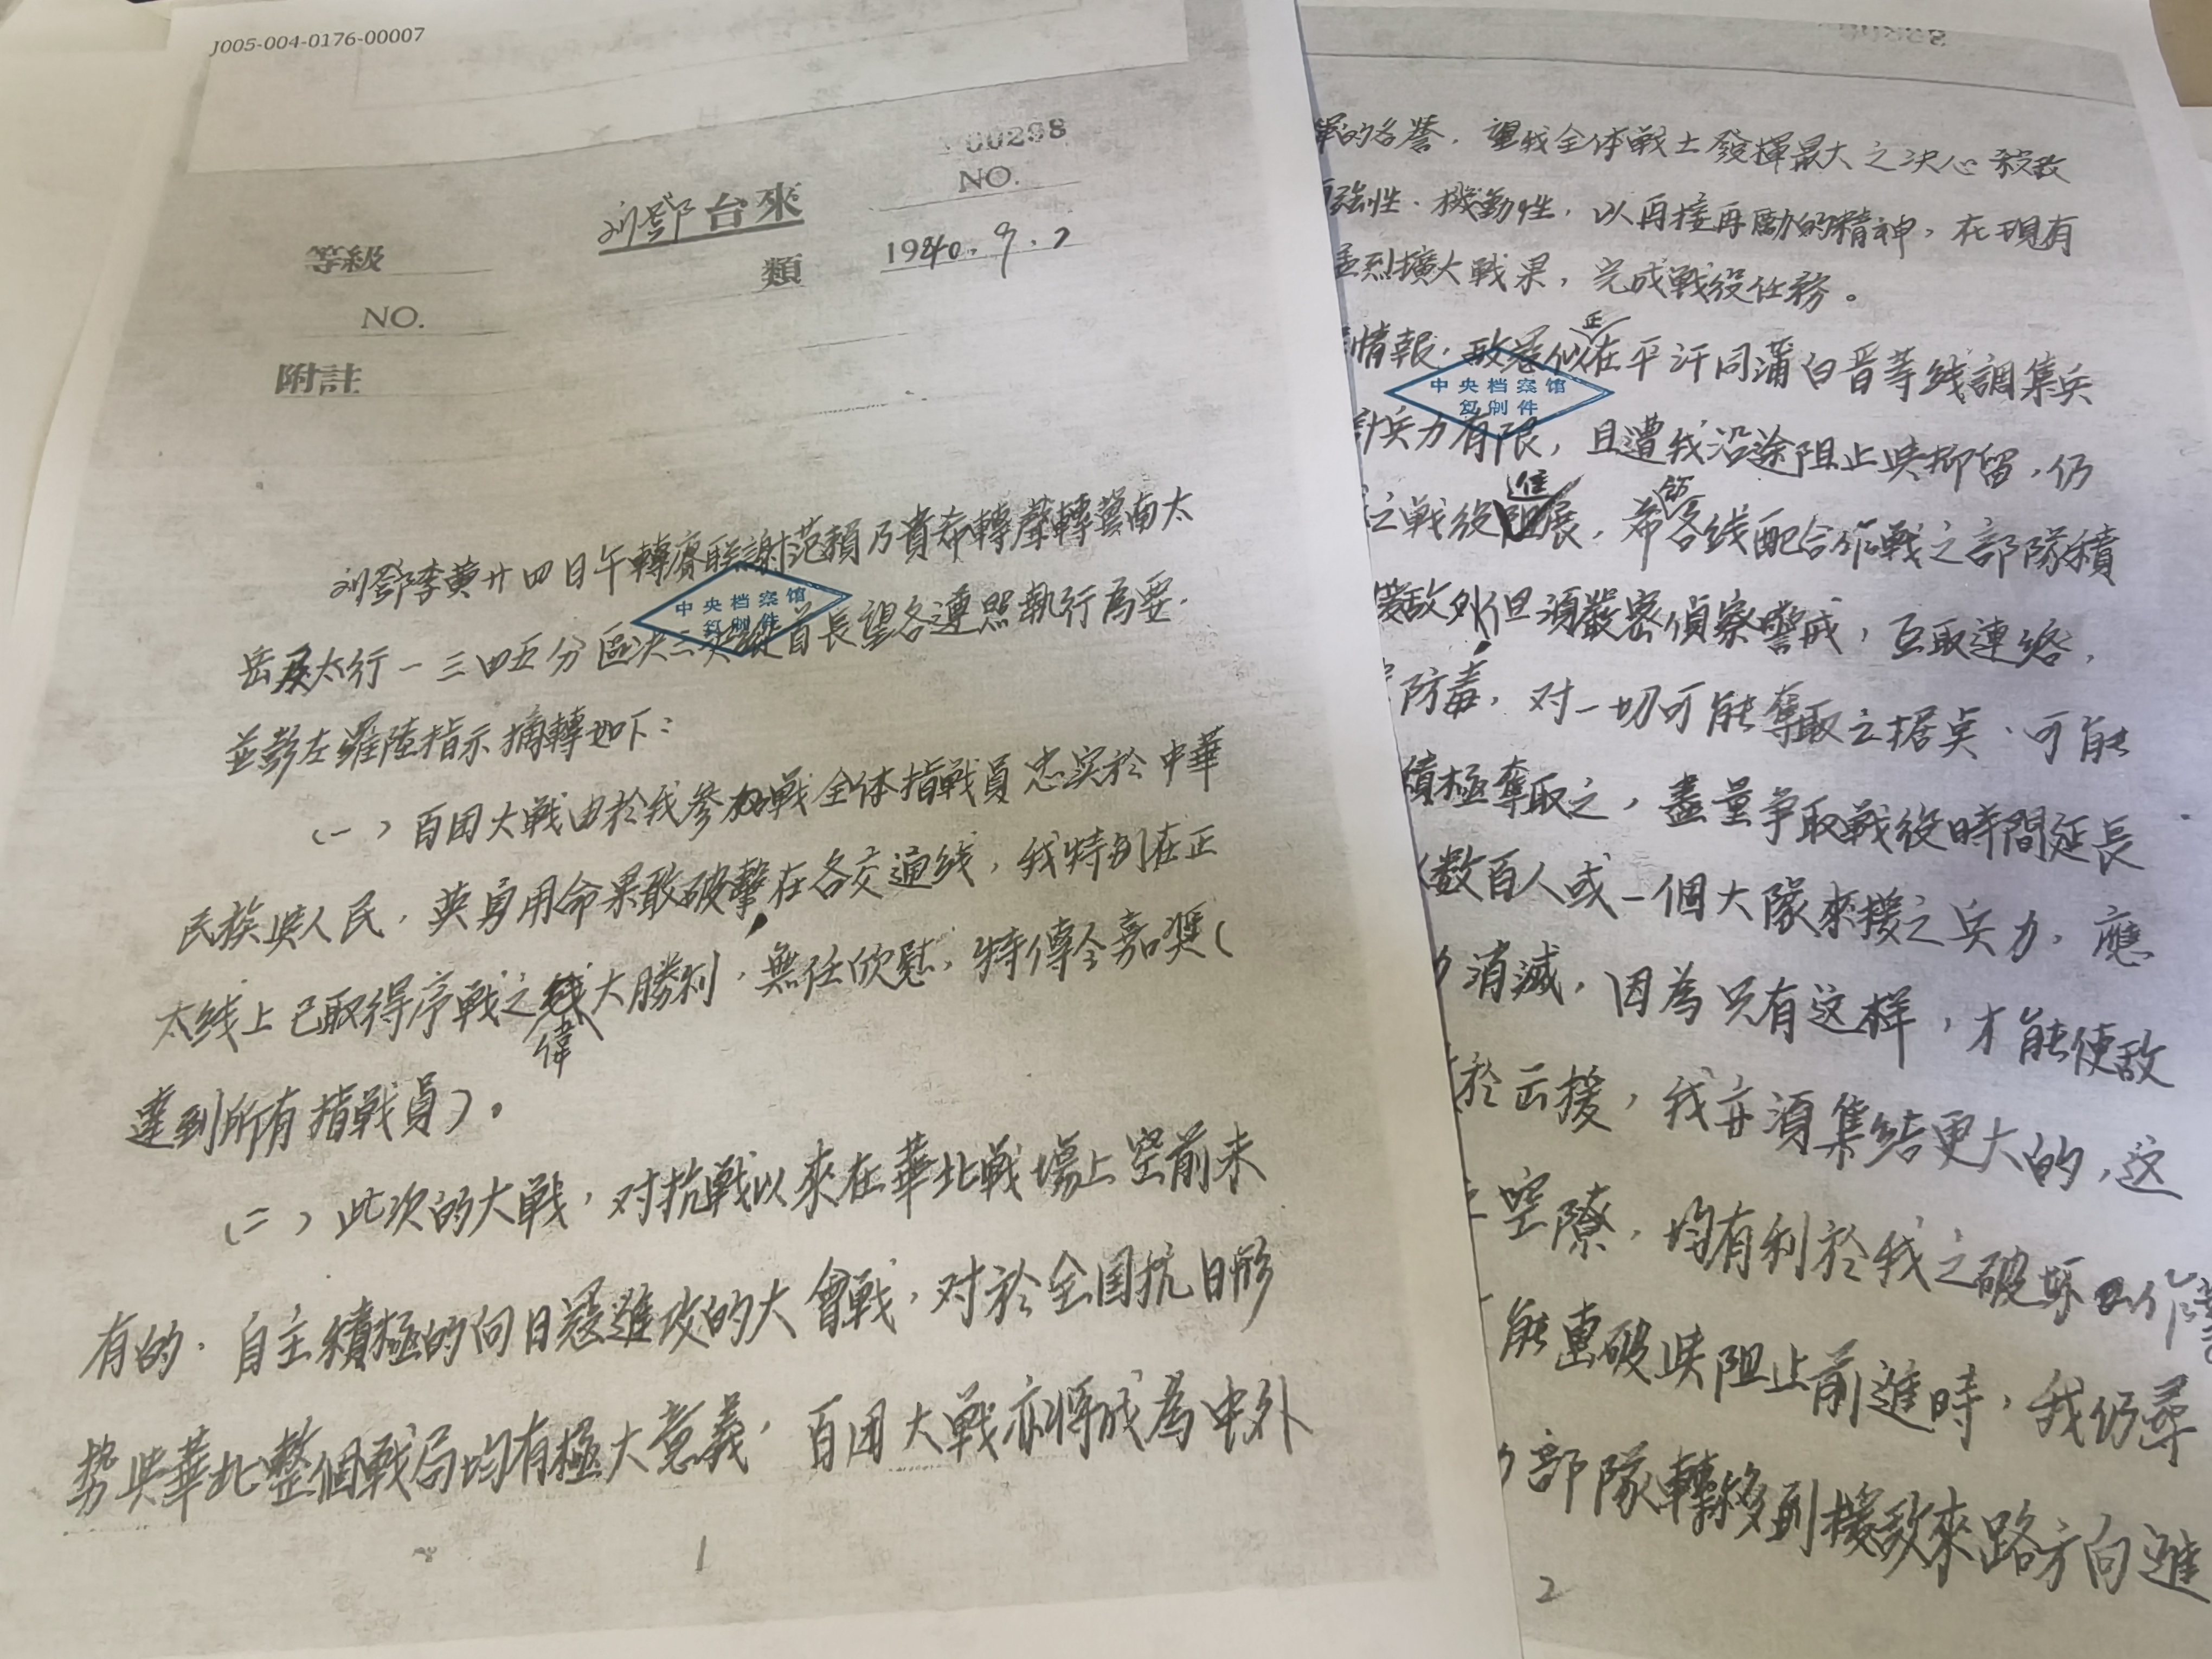 J005-004-0176-00007
00298
NO.
刘鄧台來
等級
類
1940.9.2
NO.
附註
刘鄧李黄廿四日午轉 謝范賴乃貴希轉聲轉冀南太
岳及太行一三四五分區决二 縱首長望各遵照執行為要.
並彭左羅陸指示摘轉如下:
(一)百团大戦由於我參加戦全体指戦員忠实於中華
民族與人民,英勇用命果敢破擊在各交通线,我特别在正
太线上已取得序戦之偉大勝利,無任欣慰,特傳令嘉奨(
達到所有指戦員)。
(二)此次的大戦,对抗戦以來在華北戦場上空前未
有的.自主積極的向日寇進攻的大會戦,对於全国抗日形
势與華北整個戦局均有極大意義,百团大戦亦将成為中外
1
中央档案馆
复制件
軍的名誉.望我全体戦士發揮最大之决心 殺敌
強性.機動性,以再接再励的精神,在現有
烈擴大戦果,完成戦役任務。
情報.敌寇似正在平汗同蒲白晋等线調集兵
計兵力有限,且遭我沿途阻止與抑留,仍
之戦役進展,希飭各线配合作戦之部隊積
援敌外,但須嚴密偵察警戒,互取連絡,
防毒,对一切可能奪取之据点.可能
積極奪取之,盡量争取戦役時間延長
数百人或一個大隊來援之兵力,應
消滅,因為只有这样,才能使敌
於出援,我亦須集結更大的,这
空隙,均有利於我之破壞工作
能重破與阻止前進時,我仍尋
部隊轉移到援敌來路方向進
2
中央档案馆
复制件